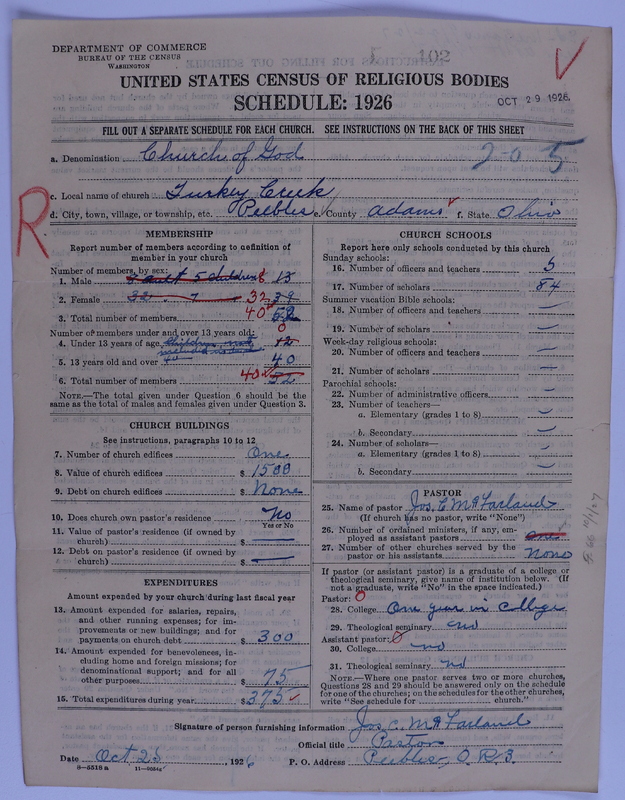 102
DEPARTMENT OF COMMERCE
BUREAU OF THE CENSUS
WASHINGTON
UNITED STATES CENSUS OF RELIGIOUS BODIES
SCHEDULE: 1926
OCT 29 1926
FILL OUT A SEPARATE SCHEDULE FOR EACH CHURCH. SEE INSTRUCTIONS ON THE BACK OF THIS SHEET
a. Denomination Church of God
2-0 5
R
c. Local name of church Turkey Creek
d. City, town, village, or township, etc. Peebles e. County Adams f. State Ohio
MEMBERSHIP
Report number of members according to definition of member in your church
Number of members, by sex:
1. Male 8 and 5 children 8 13
2. Female 32 7 32 39
3. Total number of members 40 52
Number of members under and over 13 years old:
4. Under 13 years of age children not 0 12
5. 13 years old and over 40
6. Total number of members 40 52
NOTE.—The total given under Question 6 should be the same as the total of males and females given under Question 3.
CHURCH BUILDINGS
See instructions, paragraphs 10 to 12
7. Number of church edifices One
8. Value of church edifices $ 1500
9. Debt on church edifices $ None
10. Does church own pastor's residence No
Yes or No
11. Value of pastor's residence (if owned by church) $ —
12. Debt on pastor's residence (if owned by church) $ —
EXPENDITURES
Amount expended by your church during last fiscal year
13. Amount expended for salaries, repairs, and other running expenses; for improvements or new buildings; and for payments on church debt $ 300
14. Amount expended for benevolences, including home and foreign missions; for denominational support; and for all other purposes $ 75
15. Total expenditures during year $ 375
CHURCH SCHOOLS
Report here only schools conducted by this church
Sunday schools:
16. Number of officers and teachers 5
17. Number of scholars 84
Summer vacation Bible schools:
18. Number of officers and teachers —
19. Number of scholars —
Week-day religious schools:
20. Number of officers and teachers —
21. Number of scholars —
Parochial schools:
22. Number of administrative officers —
23. Number of teachers—
a. Elementary (grades 1 to 8) —
b. Secondary —
24. Number of scholars—
a. Elementary (grades 1 to 8) —
b. Secondary —
PASTOR
25. Name of pastor Jos. C. McFarland
(If church has no pastor, write "None")
26. Number of ordained ministers, if any, employed as assistant pastors one
27. Number of other churches served by the pastor or his assistants None
If pastor (or assistant pastor) is a graduate of a college or theological seminary, give name of institution below. (If not a graduate, write "No" in the space indicated.)
Pastor: 0
28. College One year in College
29. Theological seminary no
Assistant pastor: 0
30. College no
31. Theological seminary no
NOTE.—Where one pastor serves two or more churches, Questions 28 and 29 should be answered only on the schedule for one of the churches; on the schedules for the other churches, write "See schedule for church."
Signature of person furnishing information Jos. C. McFarland
Official title Pastor
Date Oct 25, 1926 P. O. Address Peebles, O. R 3
8—5518 a